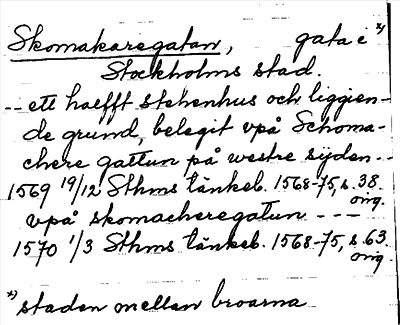 Skomakaregatan, gata i x)
Stockholms stad.
-- ett halfft stehenhus och liggien-
de grund, belegit vpå Schoma-
chere gattun på westre sijden --
1569 19/12 Sthms tänkeb. 1568-75, s. 38.
orig.
vpå skomacheregatun ---
1570 1/3 Sthms tänkeb. 1568-75, s. 63
orig.
x) staden mellan broarna